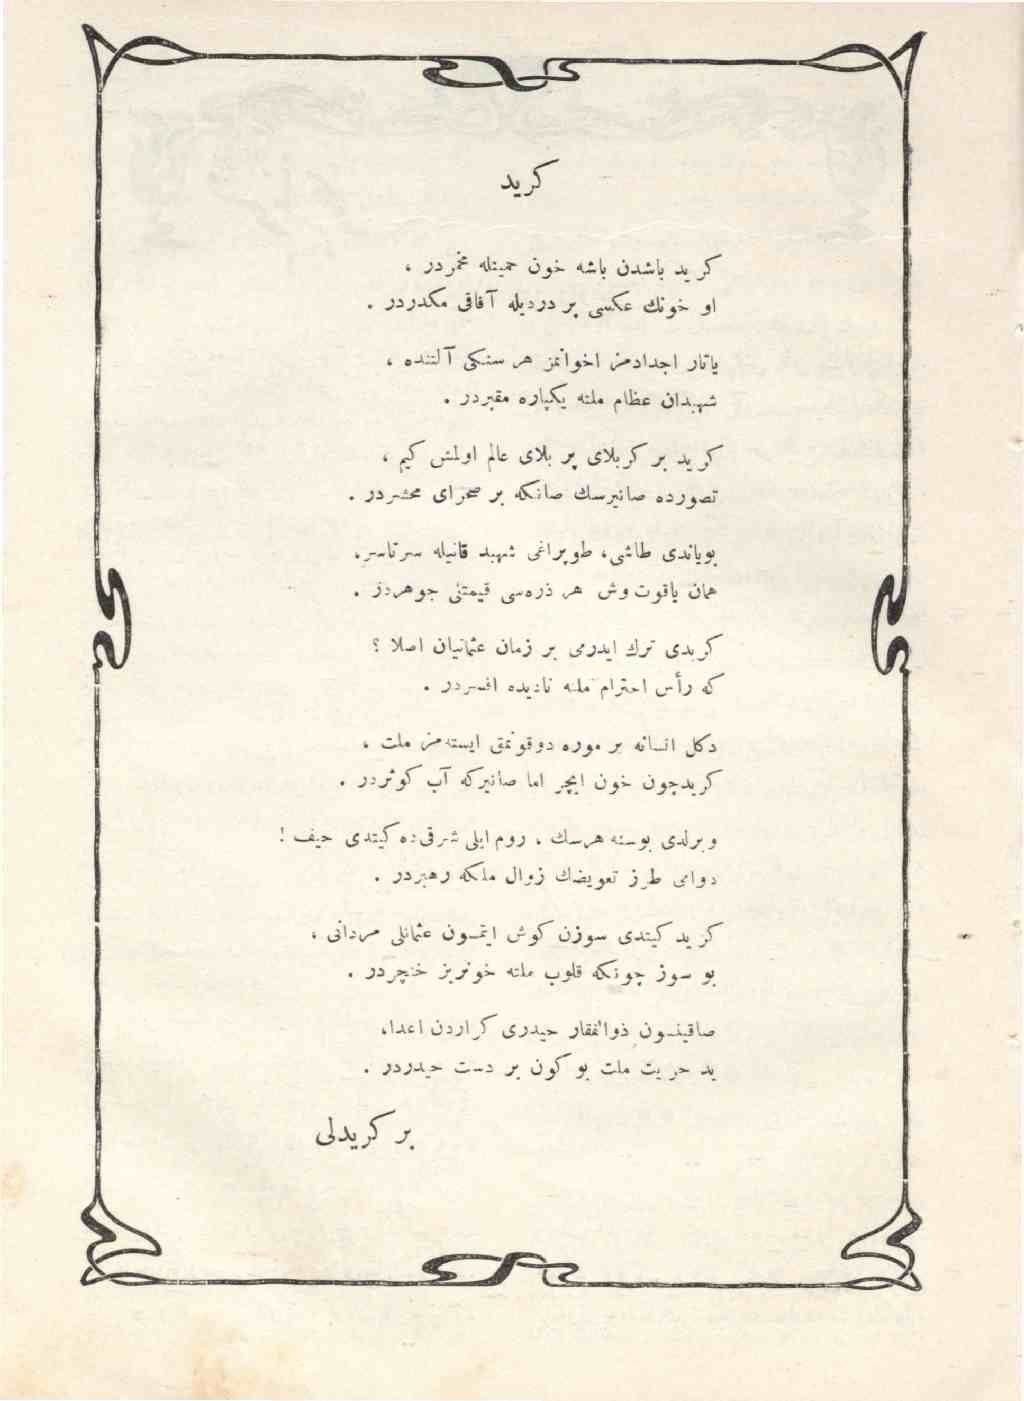 كريد
كريد باشدن باشه خون حميتله مخمردر ،
او خونك عكسى پر درديله آفاقى مكدردر .
ياتار اجدادمز اخوانمز هر سنكى آلتنده ،
شهيدان عظام ملته يكپاره مقبردر .
كريد بر كربلاى پر بلاى عالم اولمش كيم ،
تصورده صانيرسك صانكه بر صحراى محشردر .
بوياندى طاشى، طوپراغى شهيد قانيله سرتاسر،
همان ياقوت وش هر ذره‌سى قيمتلى جوهردر .
كريدى ترك ايدرمى بر زمان عثمانيان اصلا ؟
كه رأس احترام ملته ناديده افسردر .
دكل انسانه بر موره دوقونمق ايسته‌مز ملت ،
كريدچون خون ايچر اما صانيركه آب كوثردر .
ويرلدى بوسنه هرسك ، روم ايلى شرقى‌ده كيتدى حيف !
دوامى طرز تعويضك زوال ملكه رهبردر .
كريد كيتدى سوزن كوش ايتمسون عثمانلى مردانى ،
بو سوز چونكه قلوب ملته خونريز خنچردر .
صاقينسون ذوالفقار حيدرى كراردن اعدا،
يد حريت ملت بو كون بر دست حيدردر .
بر كريدلى